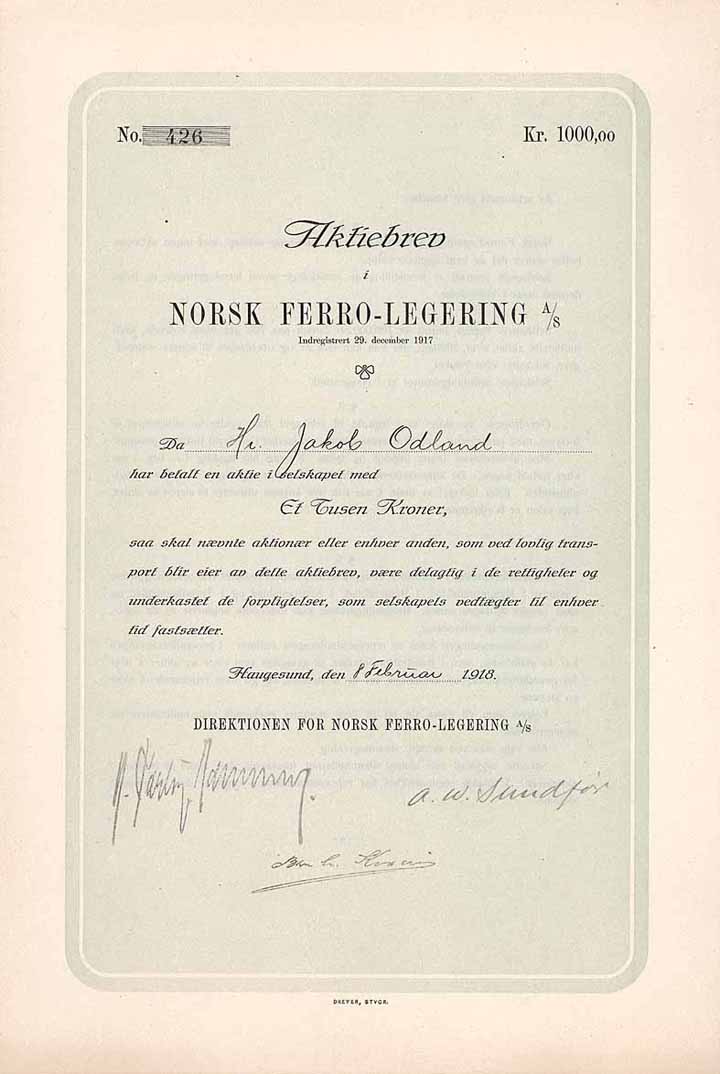 No. 426
Kr. 1000,00
Aktiebrev
i
NORSK FERRO-LEGERING A/S
Indregistrert 29. december 1917
Da Hr. Jakob Odland
har betalt en aktie i selskapet med
Et Tusen Kroner,
saa skal nævnte aktionær eller enhver anden, som ved lovlig trans-
port blir eier av dette aktiebrev, være delagtig i de rettigheter og
underkastet de forpligtelser, som selskapets vedtægter til enhver
tid fastsætter.
Haugesund, den 8 Februar 1918.
DIREKTIONEN FOR NORSK FERRO-LEGERING A/S
A. W. Sundfør
DREYER, STVGR.